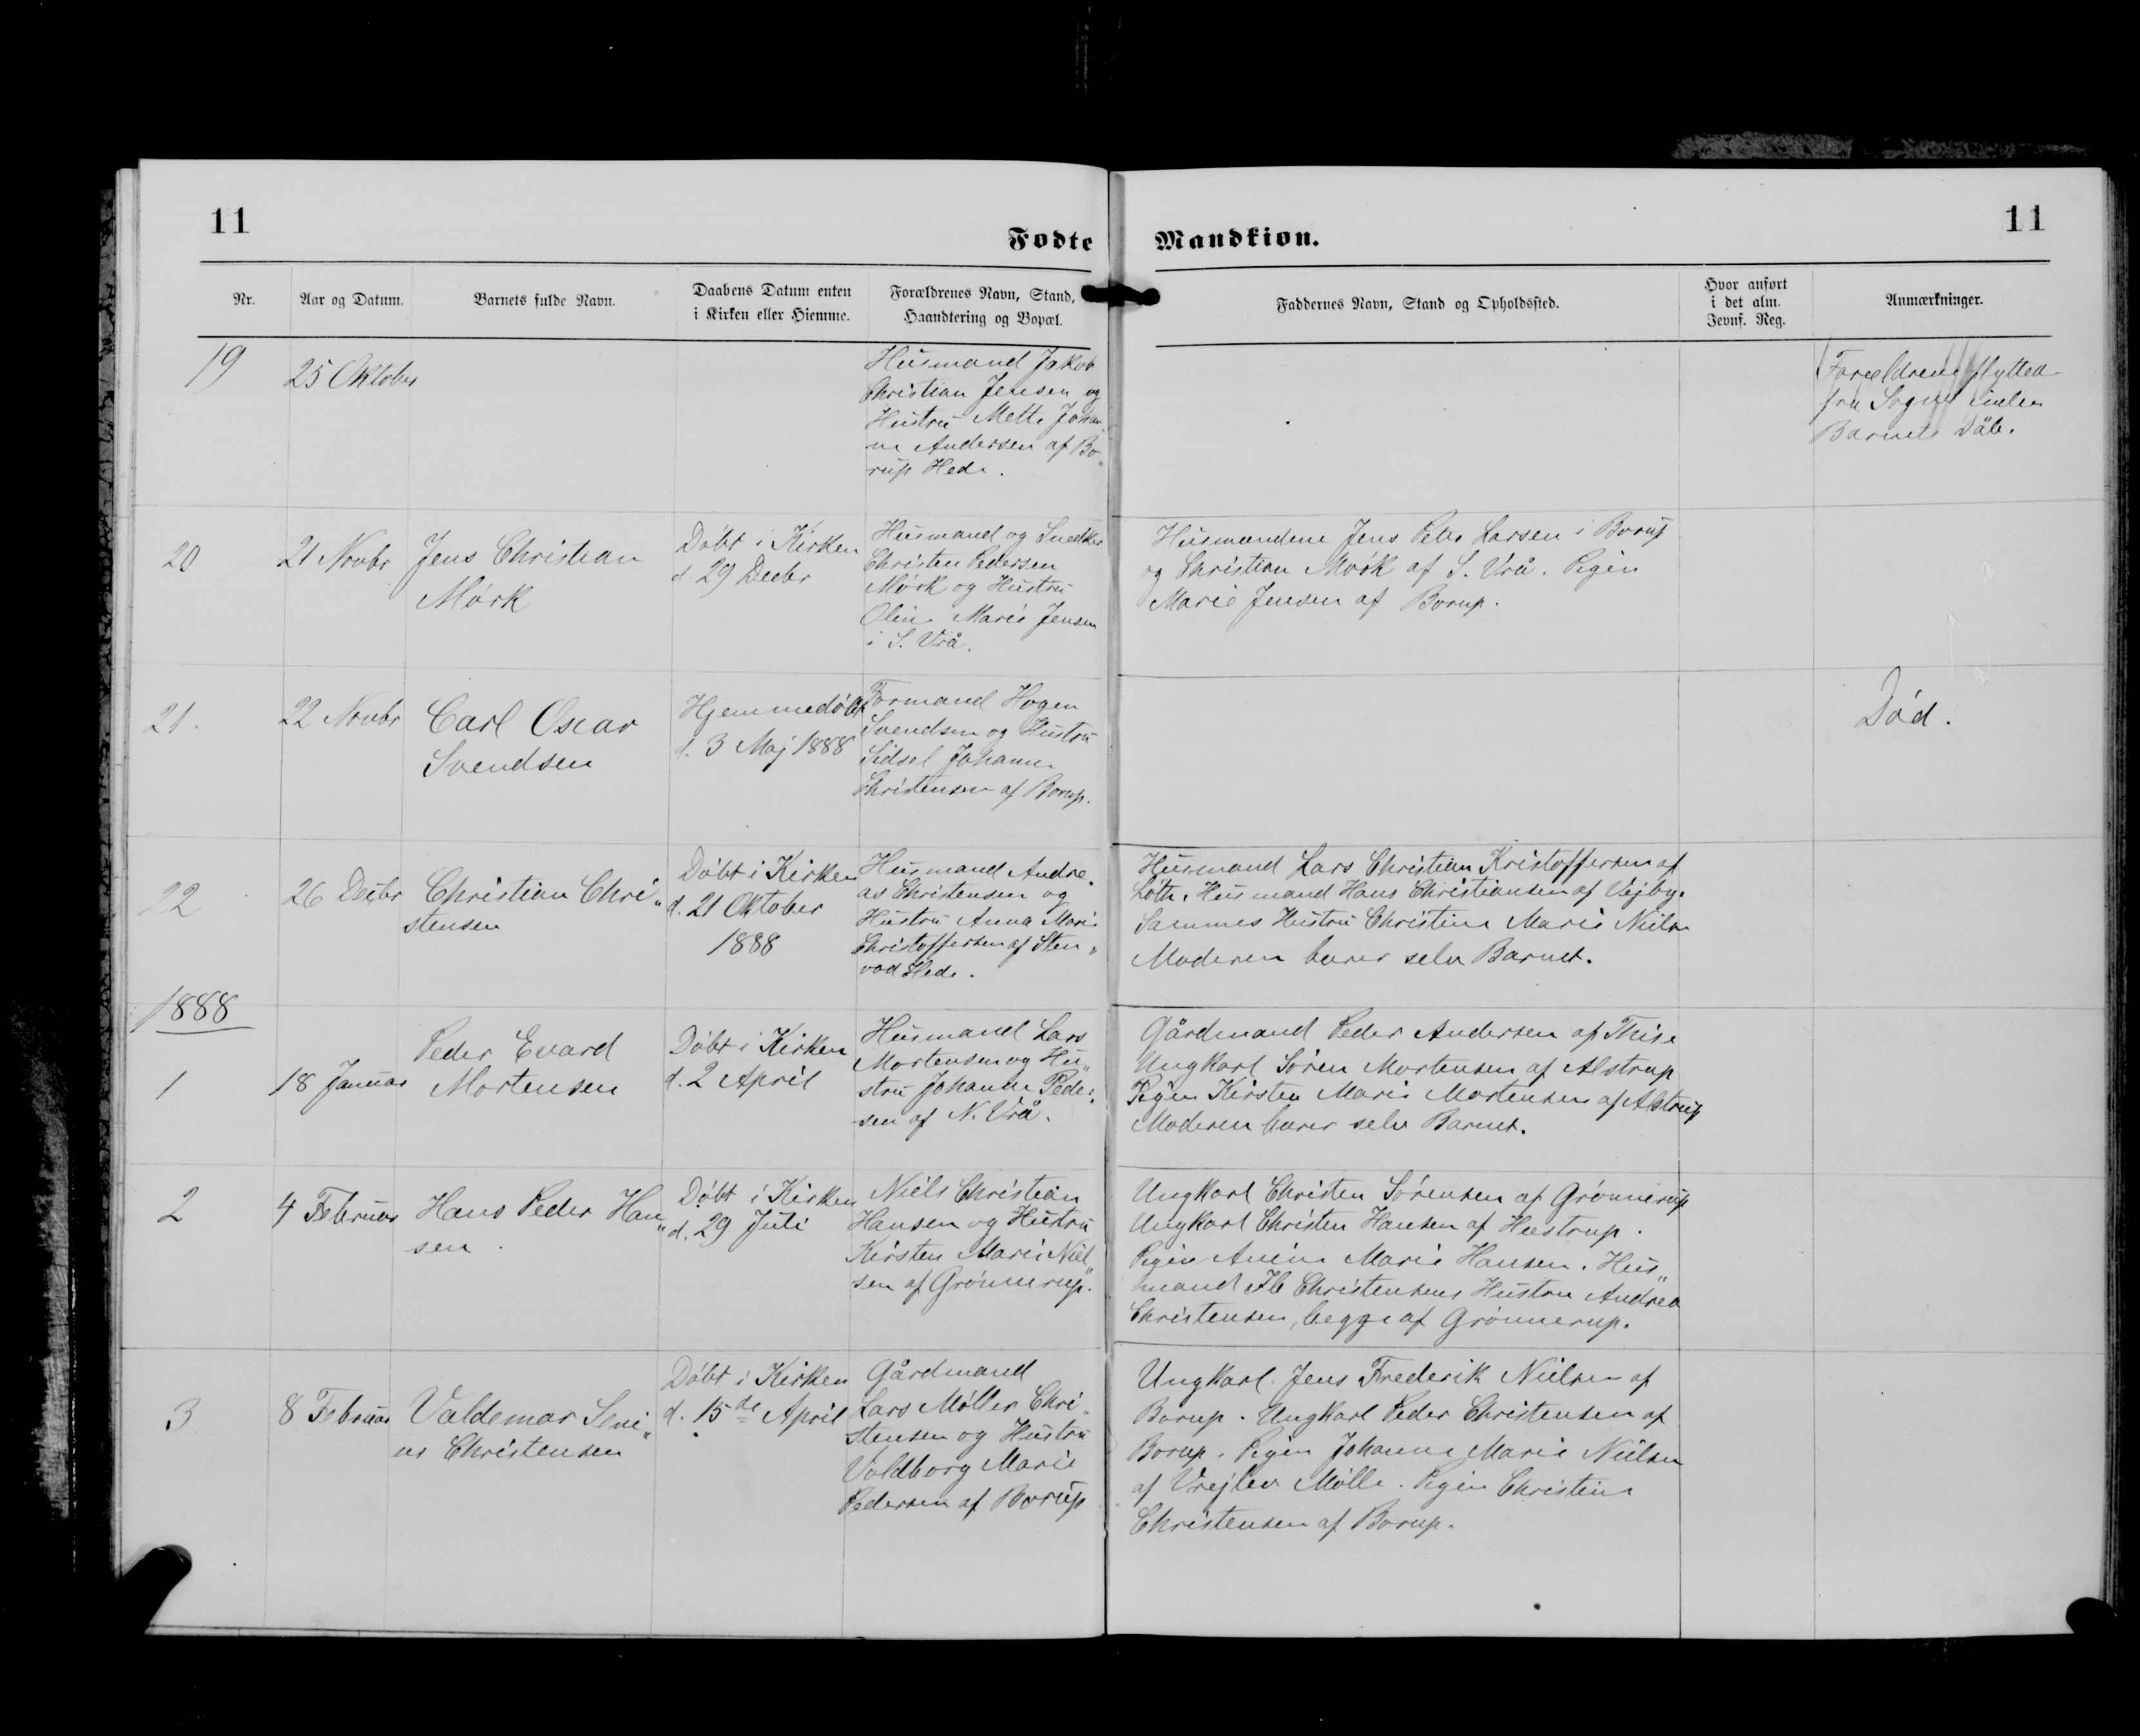 11
11
Fødte Mandkiøn.
Nr.
Aar og Datum.
Barnets fulde Navn.
Daabens Datum enten
i Kirken eller Hiemme.
Forældrenes Navn, Stand,
Haandtering og Bopæl.
Faddernes Navn, Stand og Opholdssted.
Hvor anført
i det alm.
Jevnf. Reg.
Anmærkninger.
19
25 Oktober
Husmand Jakob
Christian Jensen og
Hustru Mette Johan
ne Andersen af Bo„
rup Hede.
Forældrene flytted
fra Sognet inden
Barnets Dåb.
20
21 Novbr
Jens Christian
Mørk
Døbt i Kirken
d 29 Decbr
Husmand og Snedker
Christen Pedersen
Mørk og Hustru
Oline Marie Jensen
i S. Vrå.
Husmændene Jens Peter Larsen i Borup
og Christian Mørk af S. Vrå. Pigen
Marie Jensen af Borup.
21.
22 Novbr
Carl Oscar
Svendsen
Hjemmedøbt
d. 3 Maj 1888
Formand Hogen
Svendsen og Hustru
Sidsel Johanne
Christensen af Borup.
Død.
22
26 Decbr
Christian Chri„
stensen
Døbt i Kirken
d. 21 Oktober
1888
Husmand Andre„
as Christensen og
Hustru Anna Marie
Christoffersen af Sten„
vad Hede.
Husmand Lars Christian Kristoffersen af
Løth. Husmand Hans Christiansen af Vejby.
Sammes Hustru Christine Marie Nielsen
Moderen bærer selv Barnet.
1888
1
18 Januar
Peder Evard
Mortensen
Døbt i Kirken
d. 2 April
Husmand Lars
Mortensen og Hu„
stru Johanne Peder„
sen af N. Vrå.
Gårdmand Peder Andersen af Thise
Ungkarl Søren Mortensen af Alstrup
Pigen Kirsten Marie Mortensen af Alstrup
Moderen bærer selv Barnet.
2
4 Februar
Hans Peder Han„
sen.
Døbt i Kirken
d. 29 Juli
Niels Christian
Hansen og Hustru
Kirsten Marie Niel„
sen af Grønnerup.
Ungkarl Christen Sørensen af Grønnerup
Ungkarl Christen Hansen af Hæstrup.
Pigen Anine Marie Hansen. Hus„
mand Ib Christensens Hustru Andrea
Christensen, begge af Grønnerup.
3
8 Februar
Valdemar Seni„
us Christensen
Døbt i Kirken
d. 15de April
Gårdmand
Lars Møller Chri„
stensen og Hustru
Valdborg Marie
Pedersen af Borup
Ungkarl Jens Frederik Nielsen af
Borup. Ungkarl Peder Christensen af
Borup. Pigen Johanne Marie Nielsen
af Vrejlev Mølle. Pigen Christine
Christensen af Borup.